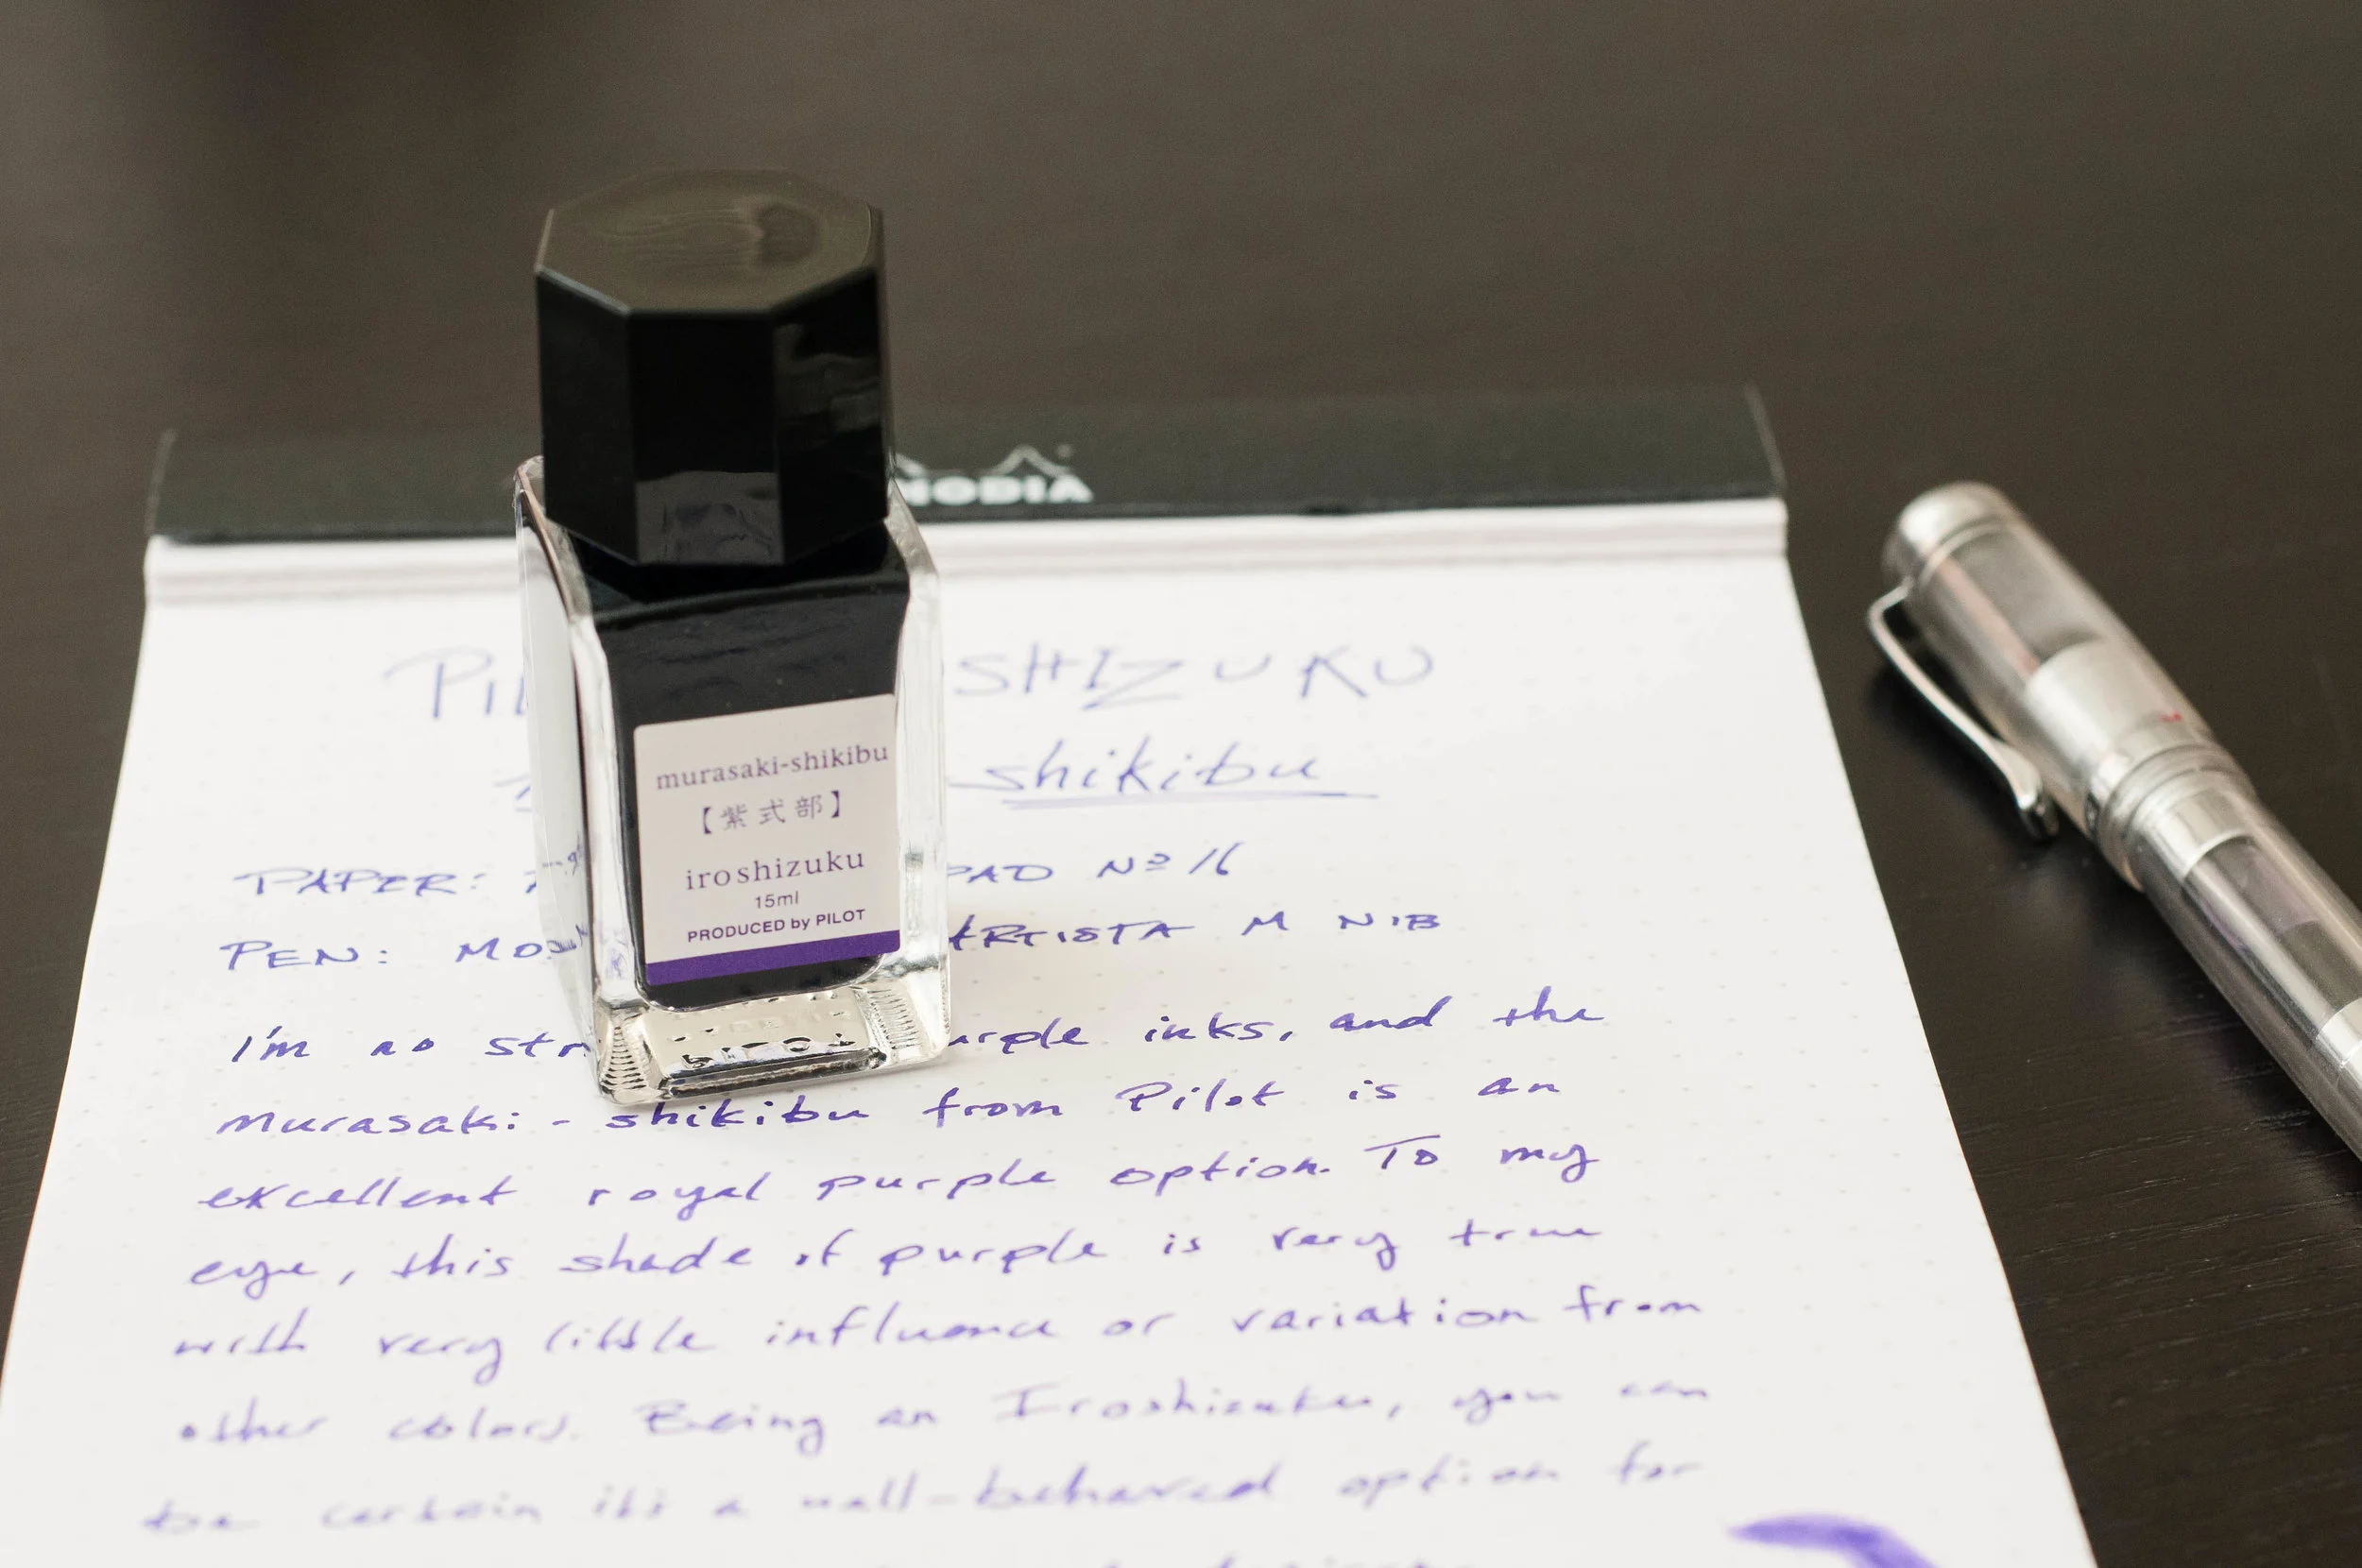 RHODIA
SHIZUKU
shikibu
PAPER: PAD Nº 16
PEN: ARTISTA M NIB
I'm no purple inks, and the
Murasaki-shikibu from Pilot is an
excellent royal purple option. To my
eye, this shade of purple is very true
with very little influence or variation from
other colors. Being an Iroshizuku, you can
be certain it's a well-behaved option for
murasaki-shikibu
【紫式部】
iroshizuku
15ml
PRODUCED by PILOT